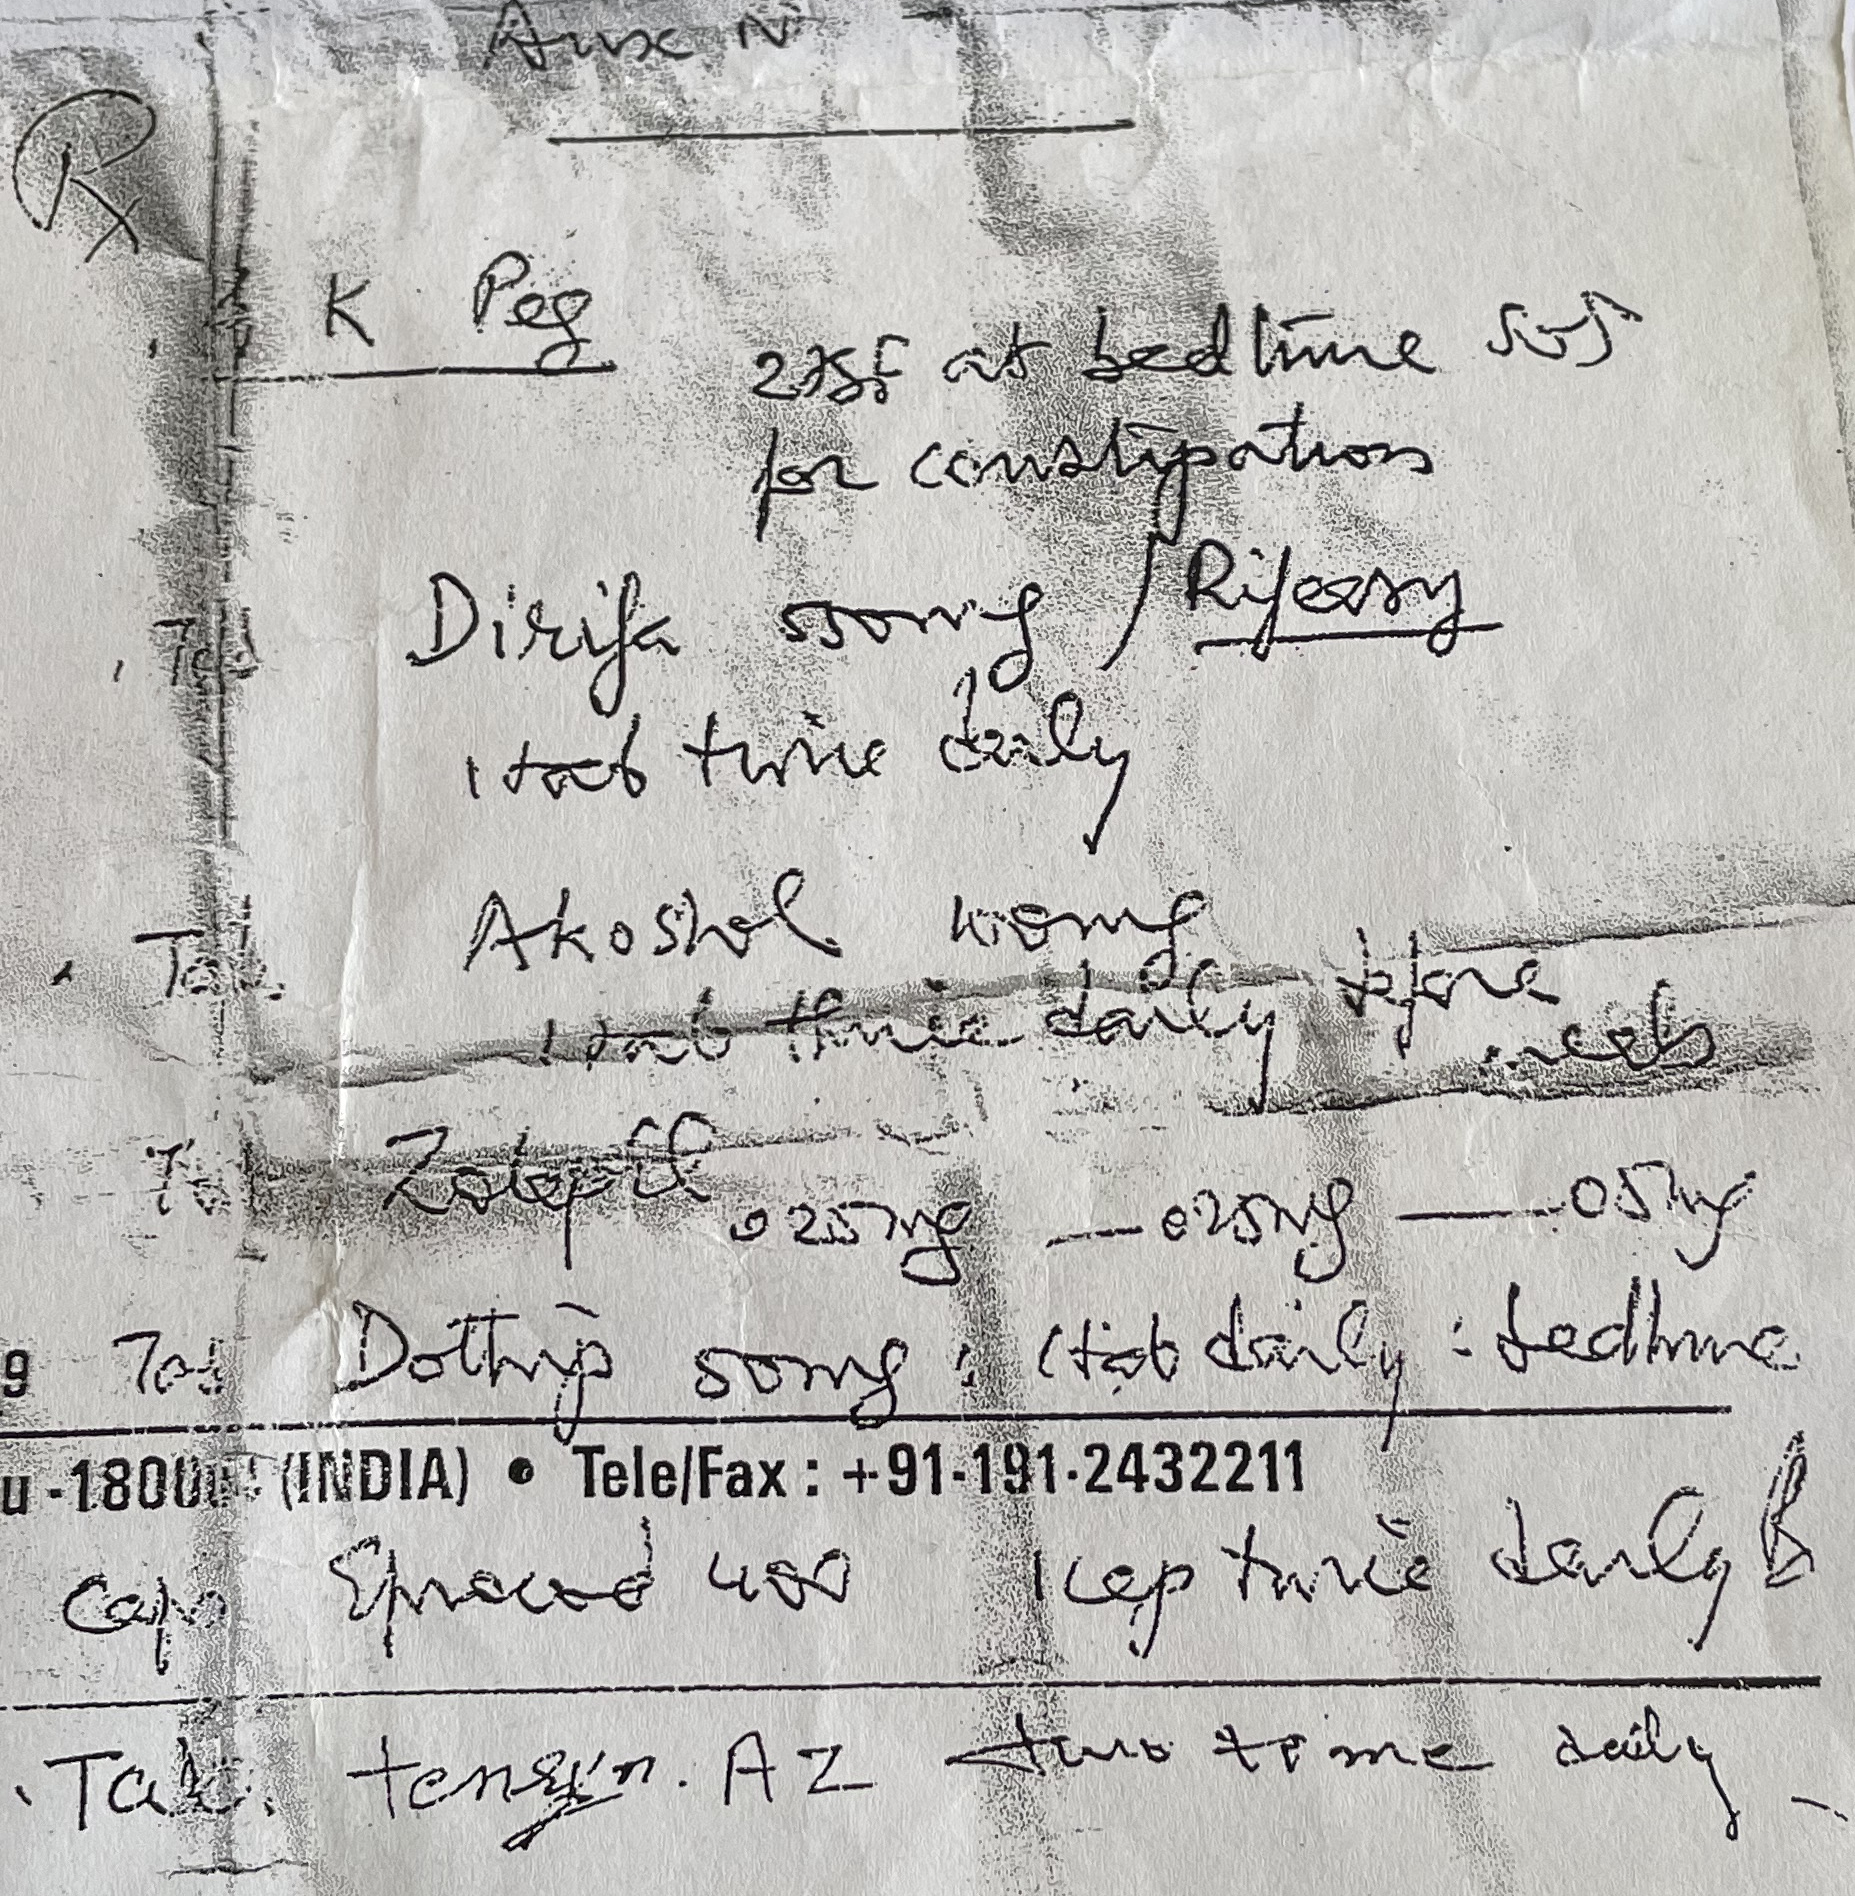 Rx
K Peg
2tsf at bedtime sos
for constipation
Tab Dirifa 550mg / Rifeasy
1 tab twice daily
Tab. Akoshol
1 tab thrice daily before
meals
0.25mg — 0.25mg — 0.5mg
Tab Dothip 50mg : 1 tab daily : bedtime
(INDIA) • Tele/Fax : +91-191-2432211
Cap 400 1 cap twice daily
Tab. tensyn. AZ two time daily